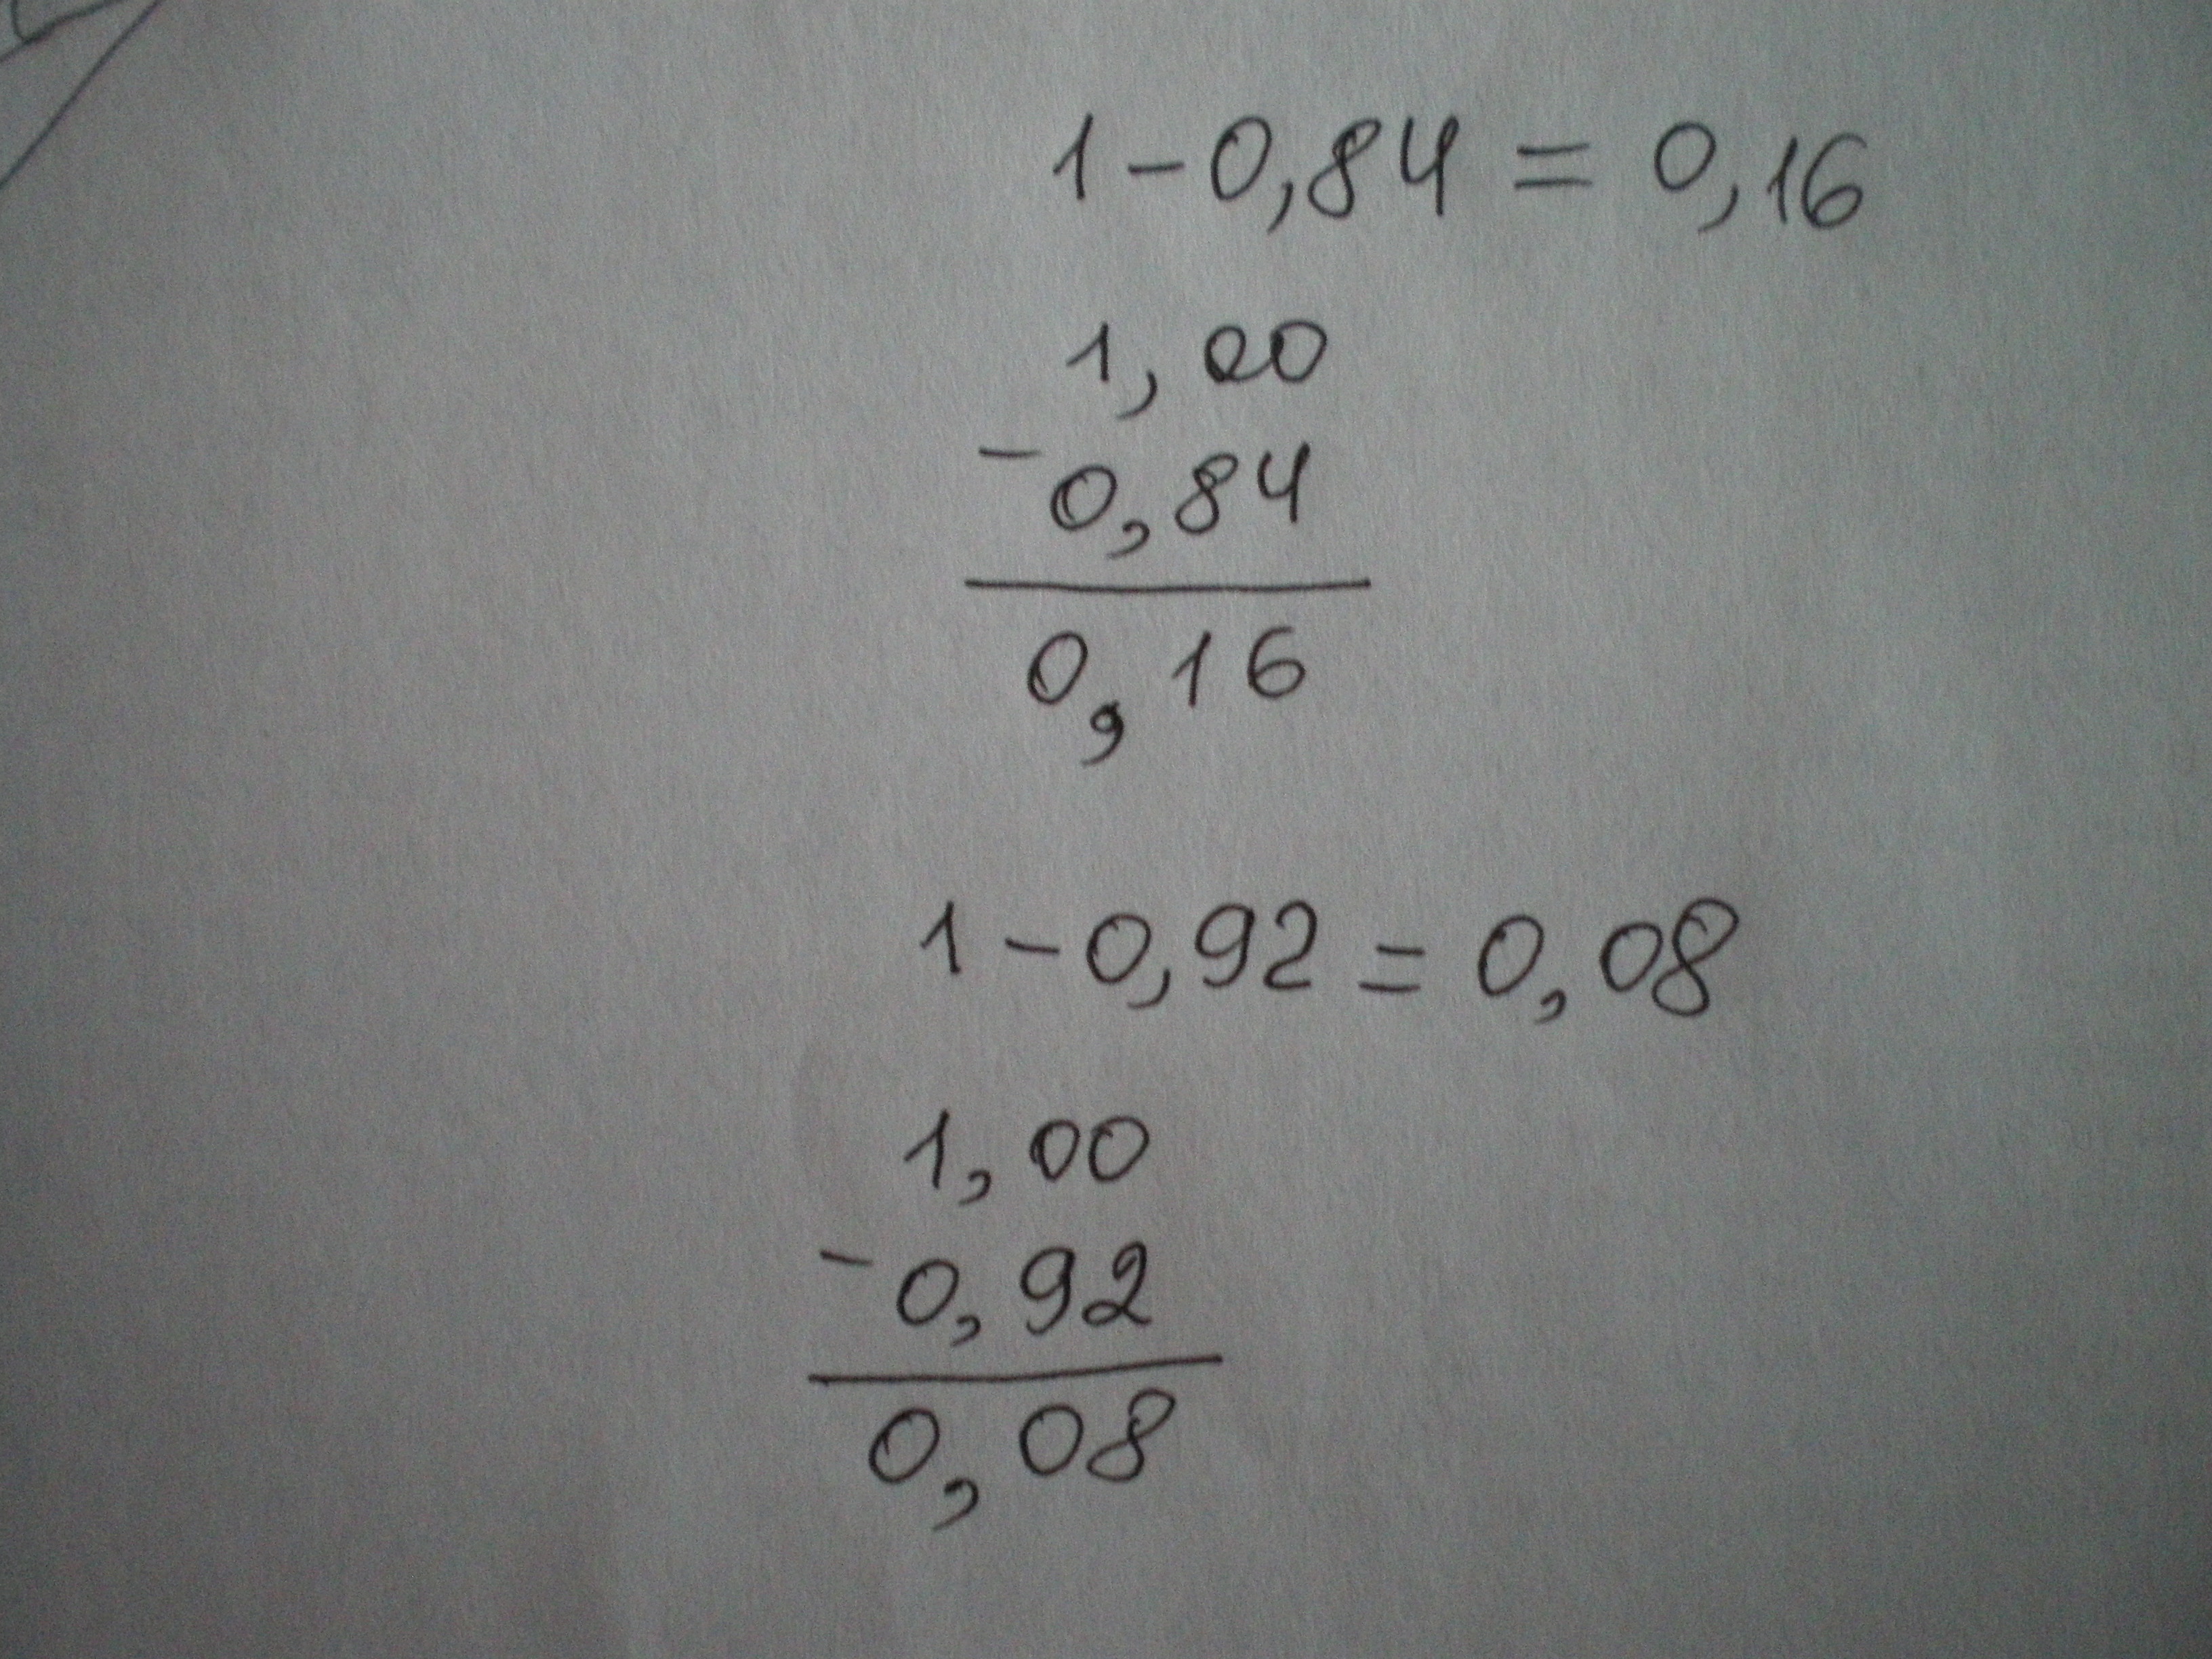 1 - 0,84 = 0,16
1,00
- 0,84
0,16
1 - 0,92 = 0,08
1,00
- 0,92
0,08